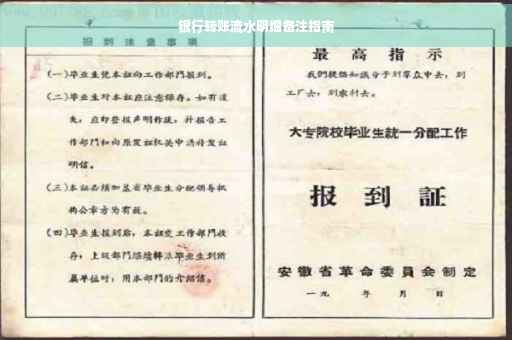 银行转账流水明细备注指南
报到注意事项
(一)毕业生凭本证向工作部门报到。
(二)毕业生对本证应注意保存。如有遗
失，应即登报声明作废，并报告工
作部门和向原发证机关申请补发证
明信。
(三)本证必须加盖省毕业生分配领导机
构公章方为有效。
(四)毕业生报到后，本证交工作部门收
存，上级部门继续转派毕业生到所
属单位时，用本部门的介绍信。
最高指示
我们提倡知识分子到群众中去，到
工厂去，到农村去。
大专院校毕业生统一分配工作
报到証
安徽省革命委员会制定
一九 年 月 日